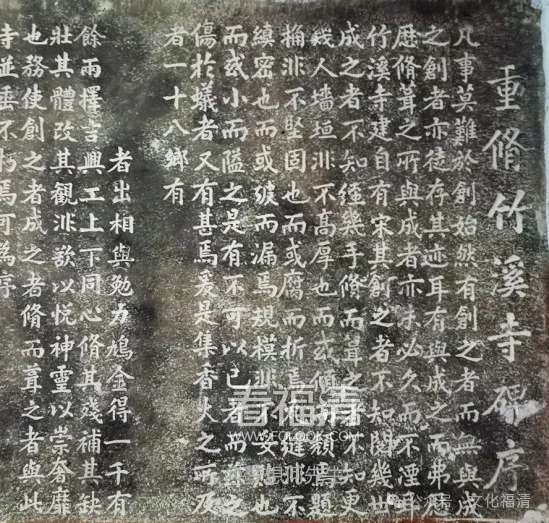 重脩竹溪寺碑序
凡事莫難於創始然有創之者而無與成
之創者亦徒存其迹耳有與成之而弗思
歷脩葺之所與成者亦未必久而不湮耳
竹溪寺建自有宋其創之者不知閱幾世
成之者不知經幾手脩而葺之者不知更
幾人墻垣非不高厚也而或傾而頹焉題
桷非不堅固也而或腐而折焉縫非不
縝密也而或破而漏焉規模非不安也
而或小而隘之是有不可以已者而茲之
傷於蟻者又有甚焉爰是集香火之所及
者一十八鄉有
者出相與勉力鳩金得一千有
餘兩擇吉興工上下同心脩其殘補其缺
壯其體改其觀非欲以悅神靈以崇奢靡
也務使創之者成之者脩而葺之者與此
寺並垂不朽焉可為序
看福清
文化福清